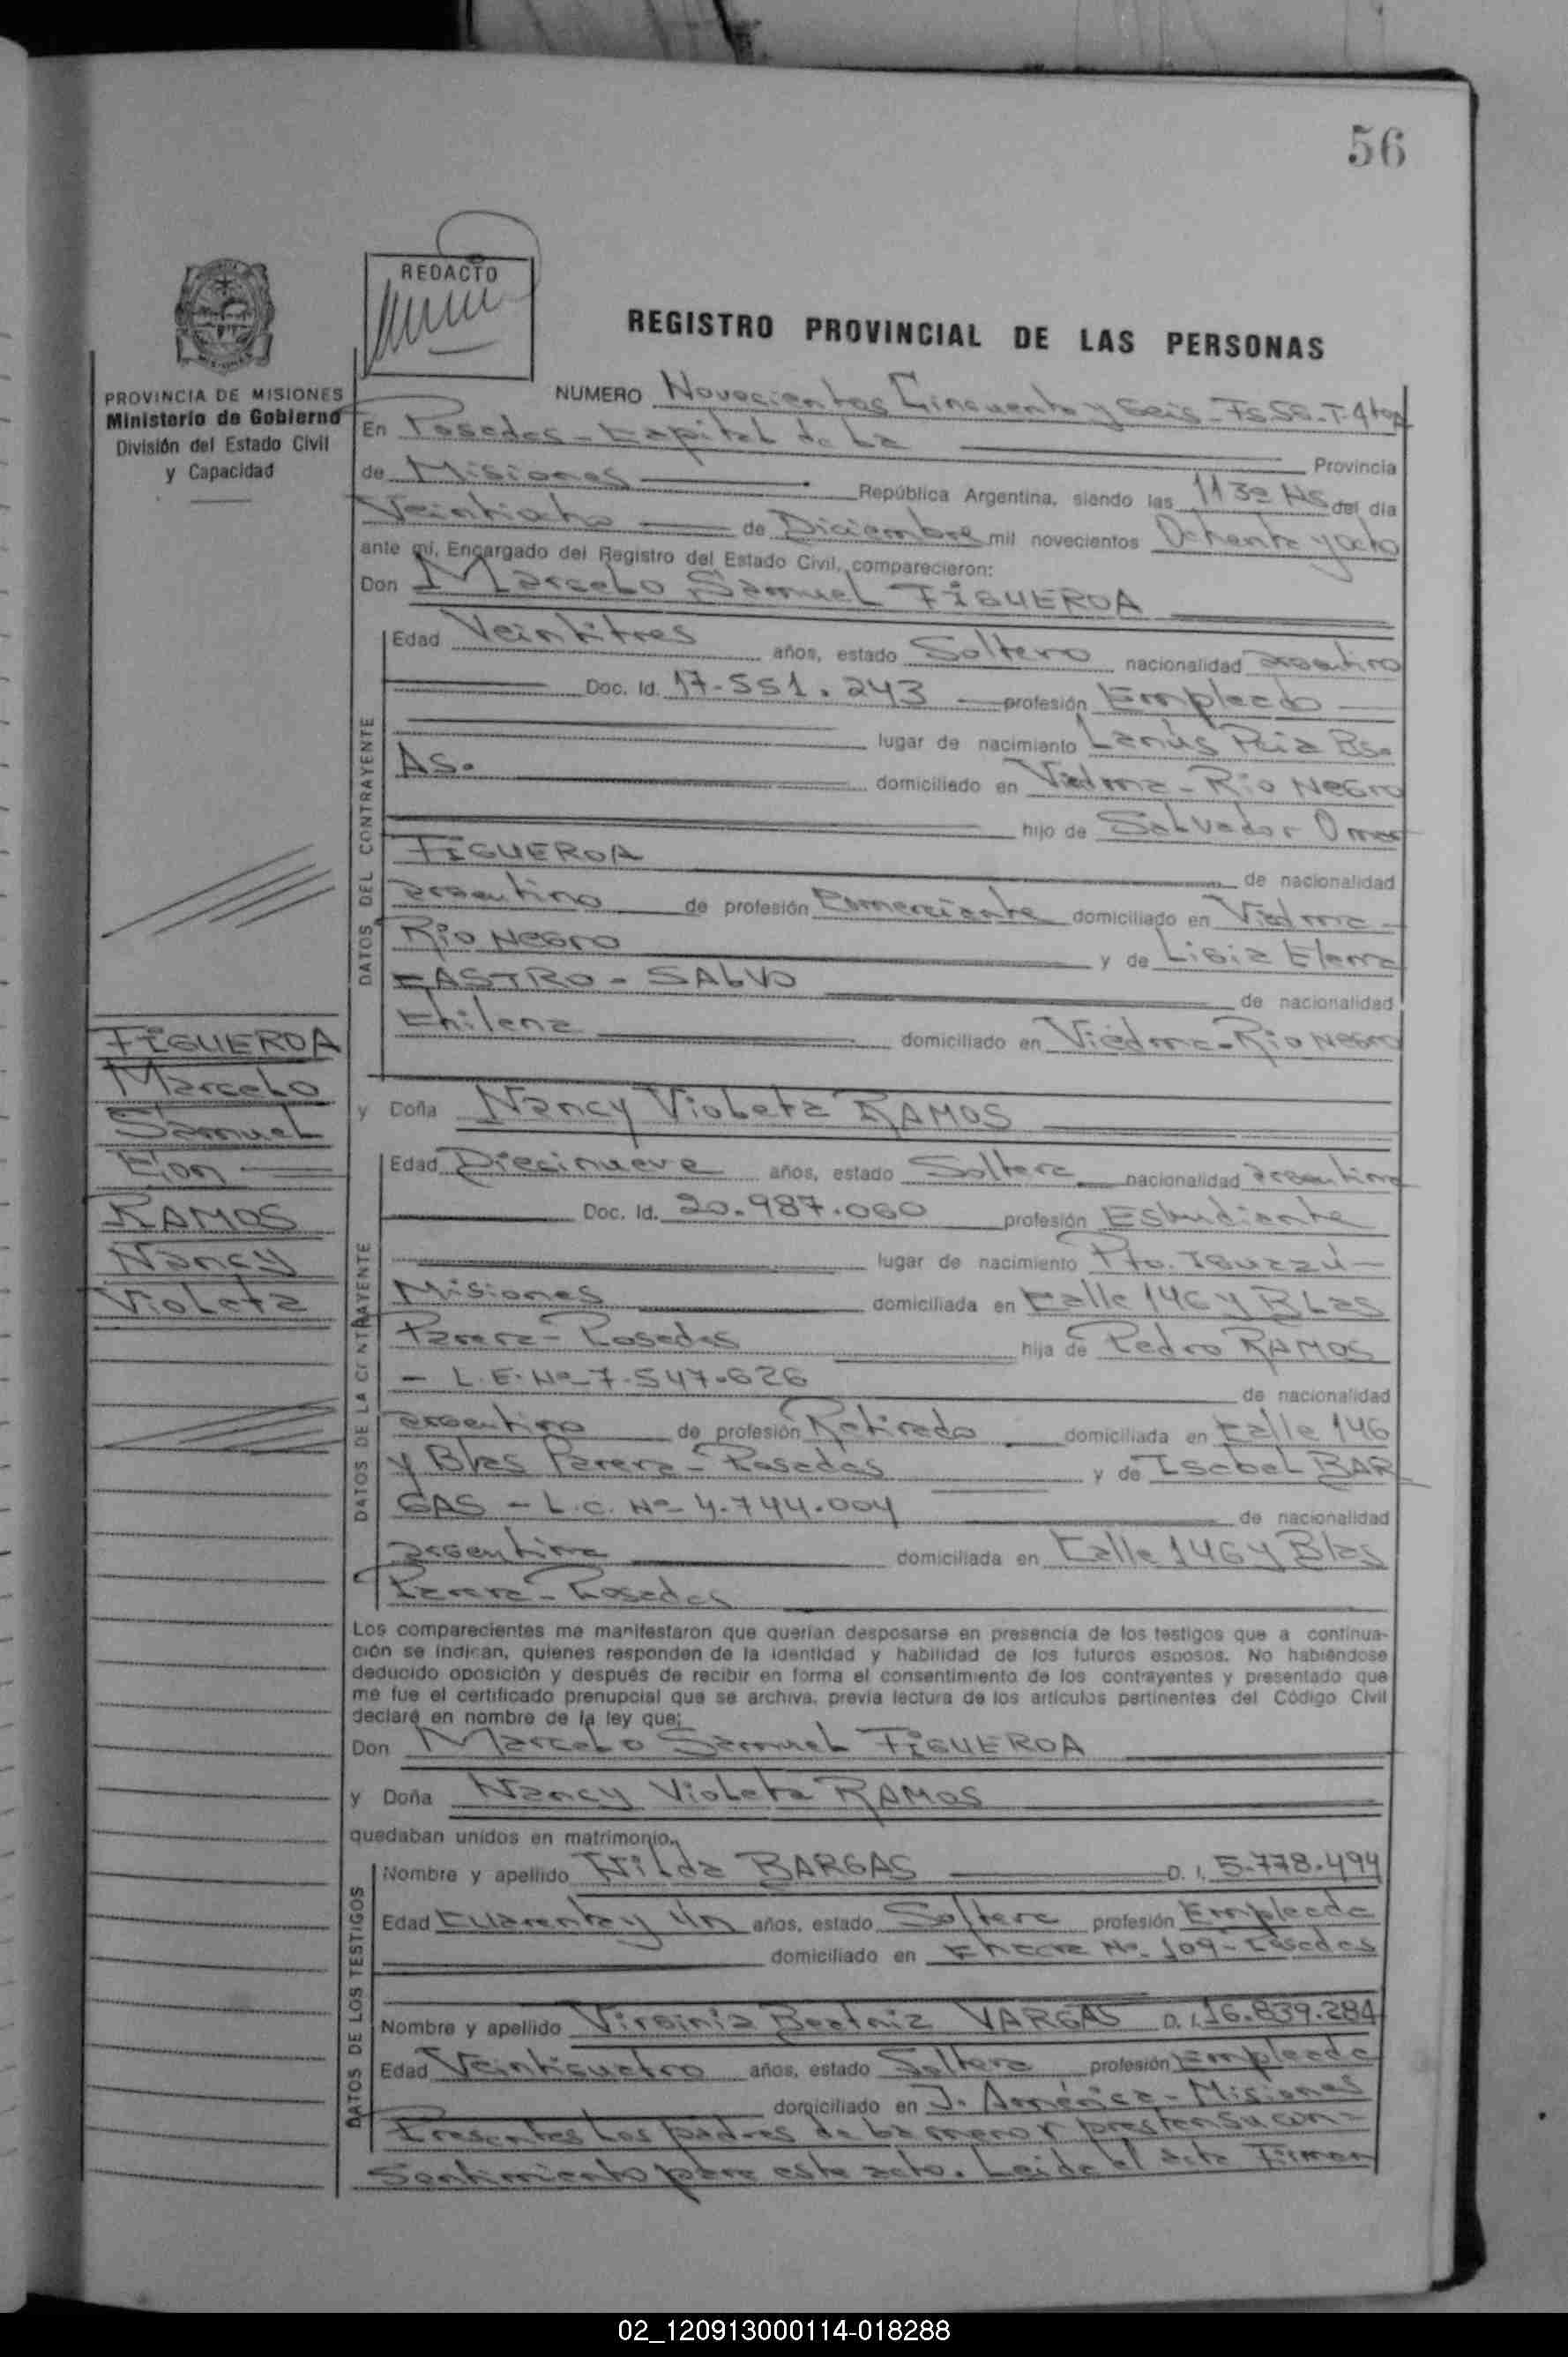 56
REDACTO
REGISTRO PROVINCIAL DE LAS PERSONAS
PROVINCIA DE MISIONES
Ministerio de Gobierno
División del Estado Civil
y Capacidad
NUMERO Novecientos Cincuenta y Seis - Fs 56 - T. 4to
En Posadas - Capital de La Provincia
de Misiones República Argentina, siendo las 1130 Hs del día
Veintiocho de Diciembre mil novecientos Ochenta y Ocho
ante mí, Encargado del Registro del Estado Civil, comparecieron:
Don Marcelo Samuel FIGUEROA
DATOS DEL CONTRAYENTE
Edad Veintitres años, estado Soltero nacionalidad argentino
Doc. Id. 17-551.243 profesión Empleado
lugar de nacimiento Lanús Pcia Bs.
As. domiciliado en Viedma - Rio Negro
hijo de Salvador Omar
FIGUEROA de nacionalidad
argentino de profesión Comerciante domiciliado en Viedma -
Rio Negro y de Ligia Elena
CASTRO - SALVO de nacionalidad
Chilena domiciliado en Viedma - Rio Negro
FIGUEROA
Marcelo
Samuel
Con
RAMOS
Nancy
Violeta
y Doña Nancy Violeta RAMOS
DATOS DE LA CONTRAYENTE
Edad Diecinueve años, estado Soltera nacionalidad argentina
Doc. Id. 20.987.060 profesión Estudiante
lugar de nacimiento Pto. Iguazú -
Misiones domiciliada en Calle 146 y Blas
Parera - Posadas hija de Pedro RAMOS
- L.E. Nº 7.547.626 de nacionalidad
argentino de profesión Retirado domiciliada en Calle 146
y Blas Parera - Posadas y de Isabel BAR
GAS - L.C. Nº 4.744.004 de nacionalidad
argentina domiciliada en Calle 146 y Blas
Parera - Posadas
Los comparecientes me manifestaron que querían desposarse en presencia de los testigos que a continua-
ción se indican, quienes responden de la identidad y habilidad de los futuros esposos. No habiéndose
deducido oposición y después de recibir en forma el consentimiento de los contrayentes y presentado que
me fue el certificado prenupcial que se archiva, previa lectura de los artículos pertinentes del Código Civil
declaré en nombre de la ley que;
Don Marcelo Samuel FIGUEROA
y Doña Nancy Violeta RAMOS
quedaban unidos en matrimonio.
DATOS DE LOS TESTIGOS
Nombre y apellido Hilda BARGAS D. I. 5.778.494
Edad Cuarenta y Un años, estado Soltera profesión Empleada
domiciliado en Chacra Nº 109 - Posadas
Nombre y apellido Virginia Beatriz VARGAS D. I. 16.839.284
Edad Veinticuatro años, estado Soltera profesión Empleada
domiciliado en J. América - Misiones
Presentes Los padres de la menor prestan su con-
sentimiento para este acto. Leida el acta Firman
02_120913000114-018288